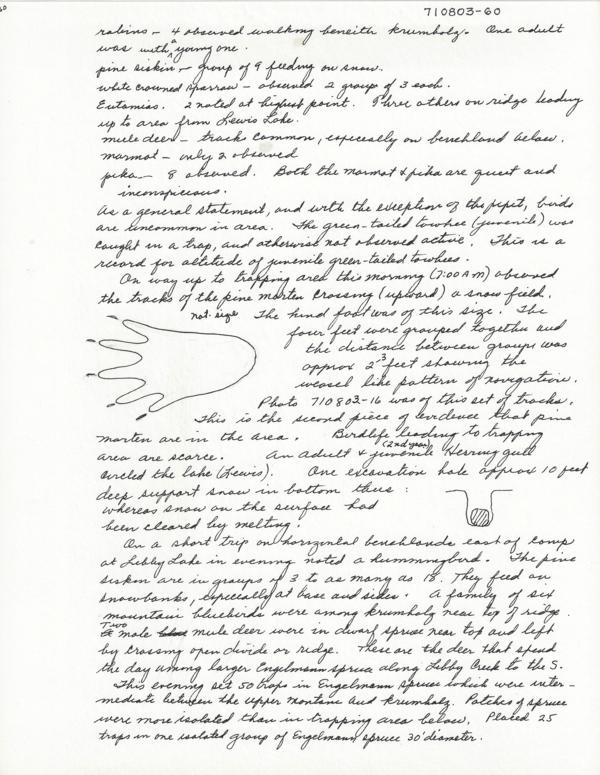 710803-60
robins – 4 observed walking beneith krumholz. One adult
was with a young one.
pine siskin – group of 9 feeding on snow.
white crowned sparrow – observed 2 groups of 3 each.
Eutamias. 2 noted at highest point. Three others on ridge leading
up to area from Lewis Lake.
mule deer – tracks common, especially on benchland below.
marmot – only 2 observed
pika – 8 observed. Both the marmot & pika are quiet and
inconspicious.
As a general statement, and with the exception of the pipit, birds
are uncommon in area. The green-tailed towhee (juvenile) was
caught in a trap, and otherwise not observed active. This is a
record for altitude of juvenile green-tailed towhees.
On way up to trapping area this morning (7:00 AM) observed
the tracks of the pine marten crossing (upward) a snow field.
nat. size The hind foot was of this size. The
four feet were grouped together and
the distance between groups was
approx 2-3 feet showing the
weasel like pattern of navigation.
Photo 710803-16 was of this set of tracks.
This is the second piece of evidence that pine
marten are in the area. Birdlife leading to trapping
area are scarce. An adult & juvenile (2nd year) Herring gull
circled the lake (Lewis). One excavation hole approx 10 feet
deep support snow in bottom thus:
whereas snow on the surface had
been cleared by melting.
On a short trip on horizontal benchlands east of camp
at Libby Lake in evening noted a hummingbird. The pine
siskin are in groups of 3 to as many as 18. They feed on
snowbanks, especially at base and sides. A family of six
mountain bluebirds were among krumholz near top of ridge.
Two male mule deer were in dwarf spruce near top and left
by crossing open divide or ridge. These are the deer that spend
the day among larger Engelmann spruce along Libby Creek to the S.
This evening set 50 traps in Engelmann spruce which were inter-
mediate between the upper montane and krumholz. Patches of spruce
were more isolated than in trapping area below. Placed 25
traps in one isolated group of Engelmann spruce 30' diameter.